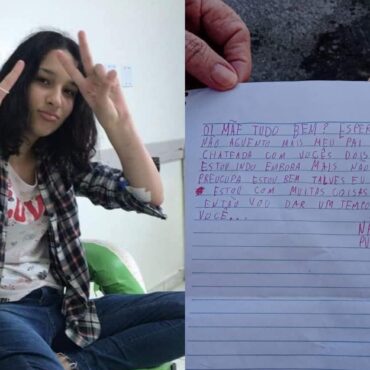 OI MÃE TUDO BEM? ESPER
NÃO AGUENTO MAIS MEU PAI
CHATEADA COM VOCÊS DOIS
ESTOU INDO EMBORA MAIS NAO
PREOCUPA ESTOU BEM TALVES EU
ESTOU COM MUITAS COISAS
ENTÃO VOU DAR UM TEMPO
VOCÊ...